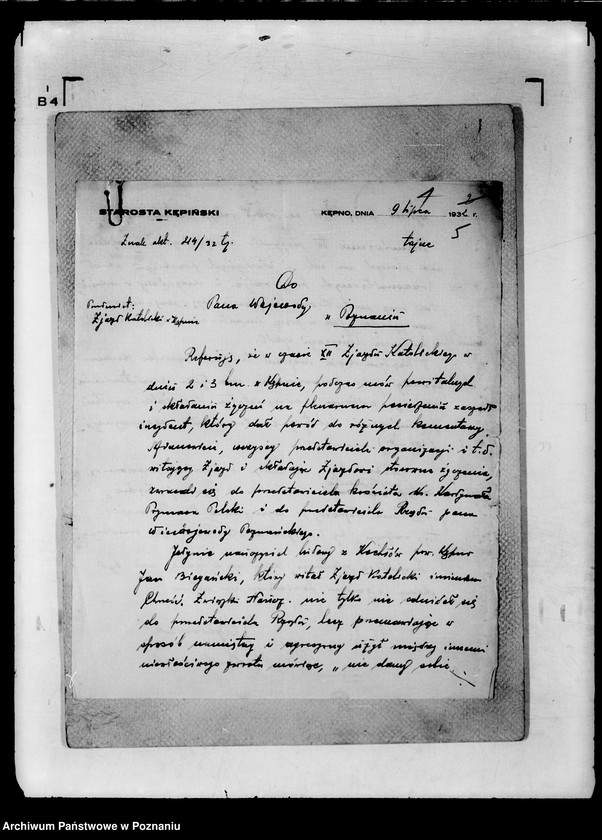 B4
4 2
STAROSTA KĘPIŃSKI KĘPNO, DNIA 9 lipca 1932 r.
5
Znak akt. 214/32 tj. tajne
Do
Pana Wojewody
w Poznaniu
Przedmiot:
Zjazd Katolicki w Kępnie
Referuję, że w czasie XII Zjazdu Katolickiego w
dniu 2 i 3 bm. w Kępnie, podczas mów powitalnych
i składania życzeń na plenarnem posiedzeniu zaszedł
incydent, który dał powód do różnych komentarzy.
Mianowicie, wszyscy przedstawiciele organizacji i t.d.
witający Zjazd i składając Zjazdowi stosowne życzenia,
zwracali się do przedstawiciela kościoła ks. Kardynała
Prymasa Polski i do przedstawiciela Rządu pana
Wicewojewody Poznańskiego.
Jedynie nauczyciel ludowy z pow. Kępno
Jan Biegański, który witał Zjazd Katolicki imieniem
Chrześć. Związku Naucz. nie tylko nie odniósł się
do przedstawiciela Rządu, lecz przemawiając w
sposób namiętny i agresywny użył między innemi
niewłaściwego zwrotu mówiąc, „nie damy sobie
Archiwum Państwowe w Poznaniu